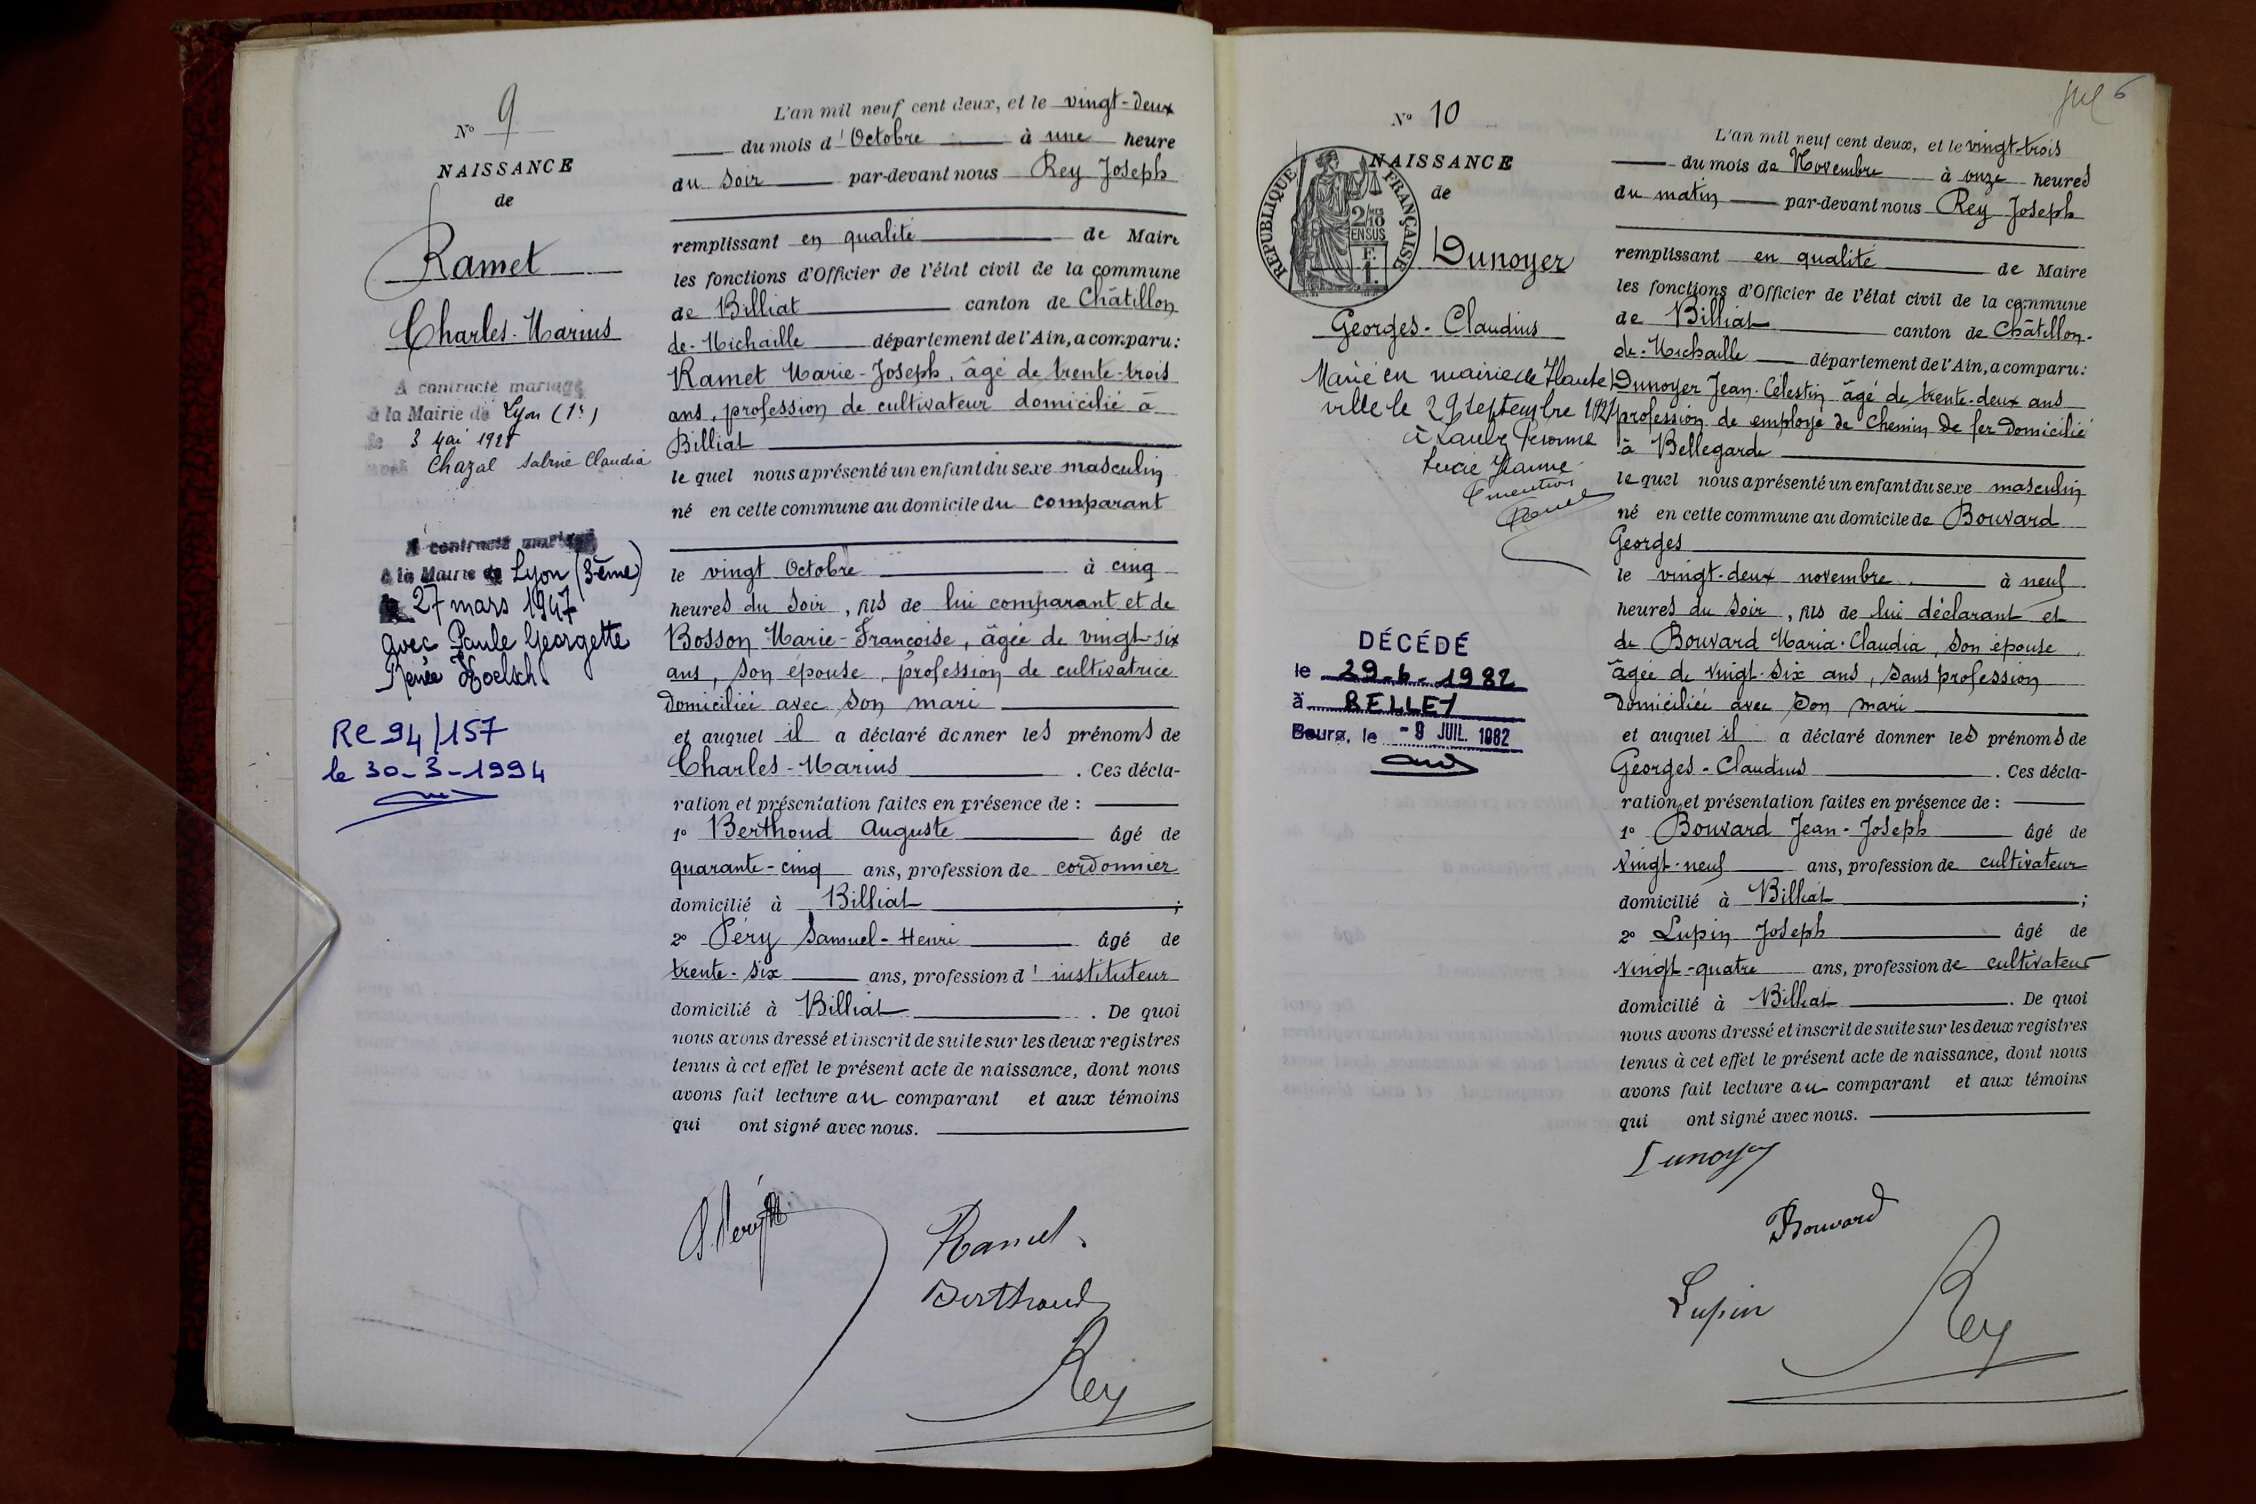 N° 9
NAISSANCE
de
Ramet
Charles-Marius
A contracté mariage
à la Mairie de Lyon (1er)
le 3 Mai 1927
avec Chazal Claudia
A contracté mariage
à la Mairie de Lyon (3ème)
le 27 mars 1947
avec Paule Georgette
Renée Hoelsch.
RC 94/157
le 30-3-1994
L'an mil neuf cent deux, et le vingt-deux
du mois d'Octobre à une heure
du soir par-devant nous Rey Joseph
remplissant en qualité de Maire
les fonctions d'Officier de l'état civil de la commune
de Billiat canton de Châtillon
de-Michaille département de l'Ain, a comparu:
Ramet Marie-Joseph, âgé de trente-trois
ans, profession de cultivateur domicilié à
Billiat
le quel nous a présenté un enfant du sexe masculin
né en cette commune au domicile du comparant
le vingt Octobre à cinq
heures du soir, fils de lui comparant et de
Bosson Marie-Françoise, âgée de vingt-six
ans, son épouse, profession de cultivatrice
domiciliée avec son mari
et auquel il a déclaré donner les prénoms de
Charles-Marius. Ces décla-
ration et présentation faites en présence de:
1° Berthoud Auguste âgé de
quarante-cinq ans, profession de cordonnier
domicilié à Billiat;
2° Péry Samuel-Henri âgé de
trente-six ans, profession d'instituteur
domicilié à Billiat. De quoi
nous avons dressé et inscrit de suite sur les deux registres
tenus à cet effet le présent acte de naissance, dont nous
avons fait lecture au comparant et aux témoins
qui ont signé avec nous.
S. Péry
Ramet.
Berthoud
Rey
6
N° 10
NAISSANCE
de
RÉPUBLIQUE FRANÇAISE
Dunoyer
Georges-Claudius
Marié en mairie de Haute
ville le 29 septembre 1927
à
Lucie Jeanne
DÉCÉDÉ
le 29-6-1982
à BELLEY
Bourg, le -9 JUIL. 1982
L'an mil neuf cent deux, et le vingt-trois
du mois de Novembre à onze heures
du matin par-devant nous Rey Joseph
remplissant en qualité de Maire
les fonctions d'Officier de l'état civil de la commune
de Billiat canton de Châtillon-
de-Michaille département de l'Ain, a comparu:
Dunoyer Jean-Célestin âgé de trente-deux ans
profession de employé de chemin de fer domicilié
à Bellegarde
le quel nous a présenté un enfant du sexe masculin
né en cette commune au domicile de Bouvard
Georges
le vingt-deux novembre à neuf
heures du soir, fils de lui déclarant et
de Bouvard Maria-Claudia, son épouse,
âgée de vingt-six ans, sans profession
domiciliée avec son mari
et auquel il a déclaré donner les prénoms de
Georges-Claudius. Ces décla-
ration et présentation faites en présence de:
1° Bouvard Jean-Joseph âgé de
vingt-neuf ans, profession de cultivateur
domicilié à Billiat;
2° Lupin Joseph âgé de
vingt-quatre ans, profession de cultivateur
domicilié à Billiat. De quoi
nous avons dressé et inscrit de suite sur les deux registres
tenus à cet effet le présent acte de naissance, dont nous
avons fait lecture au comparant et aux témoins
qui ont signé avec nous.
Dunoyer
Bouvard
Lupin
Rey